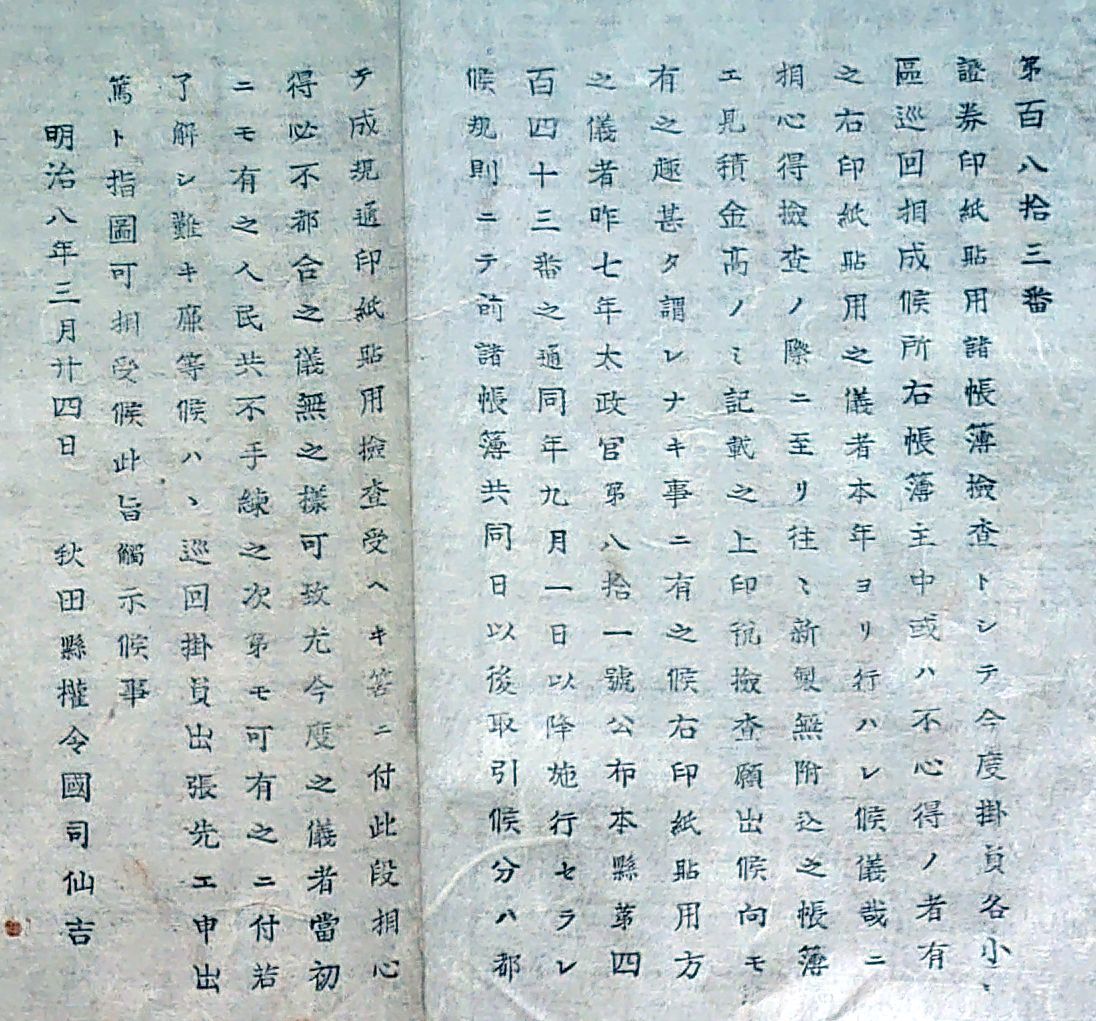 第百八拾三番
證券印紙貼用諸帳簿撿査トシテ今度掛員各小〻
區巡回相成候所右帳簿主中或ハ不心得ノ者有
之右印紙貼用之儀者本年ヨリ行ハレ候儀哉ニ
相心得撿査ノ際ニ至リ往〻新製無附込之帳簿
エ見積金髙ノミ記載之上印税撿査願出候向モ
有之趣甚タ謂レナキ事ニ有之候右印紙貼用方
之儀者昨七年太政官第八拾一號公布本縣第四
百四十三番之通同年九月一日以降施行セラレ
候規則ニテ前諸帳簿共同日以後取引候分ハ都
テ成規通印紙貼用撿査受ヘキ筈ニ付此段相心
得必不都合之儀無之様可致尤今度之儀者當初
ニモ有之人民共不手練之次第モ可有之ニ付若
了解シ難キ廉等候ハヽ巡回掛員出張先エ申出
篤ト指圖可相受候此旨觸示候事
明治八年三月廿四日　秋田縣權令國司仙吉